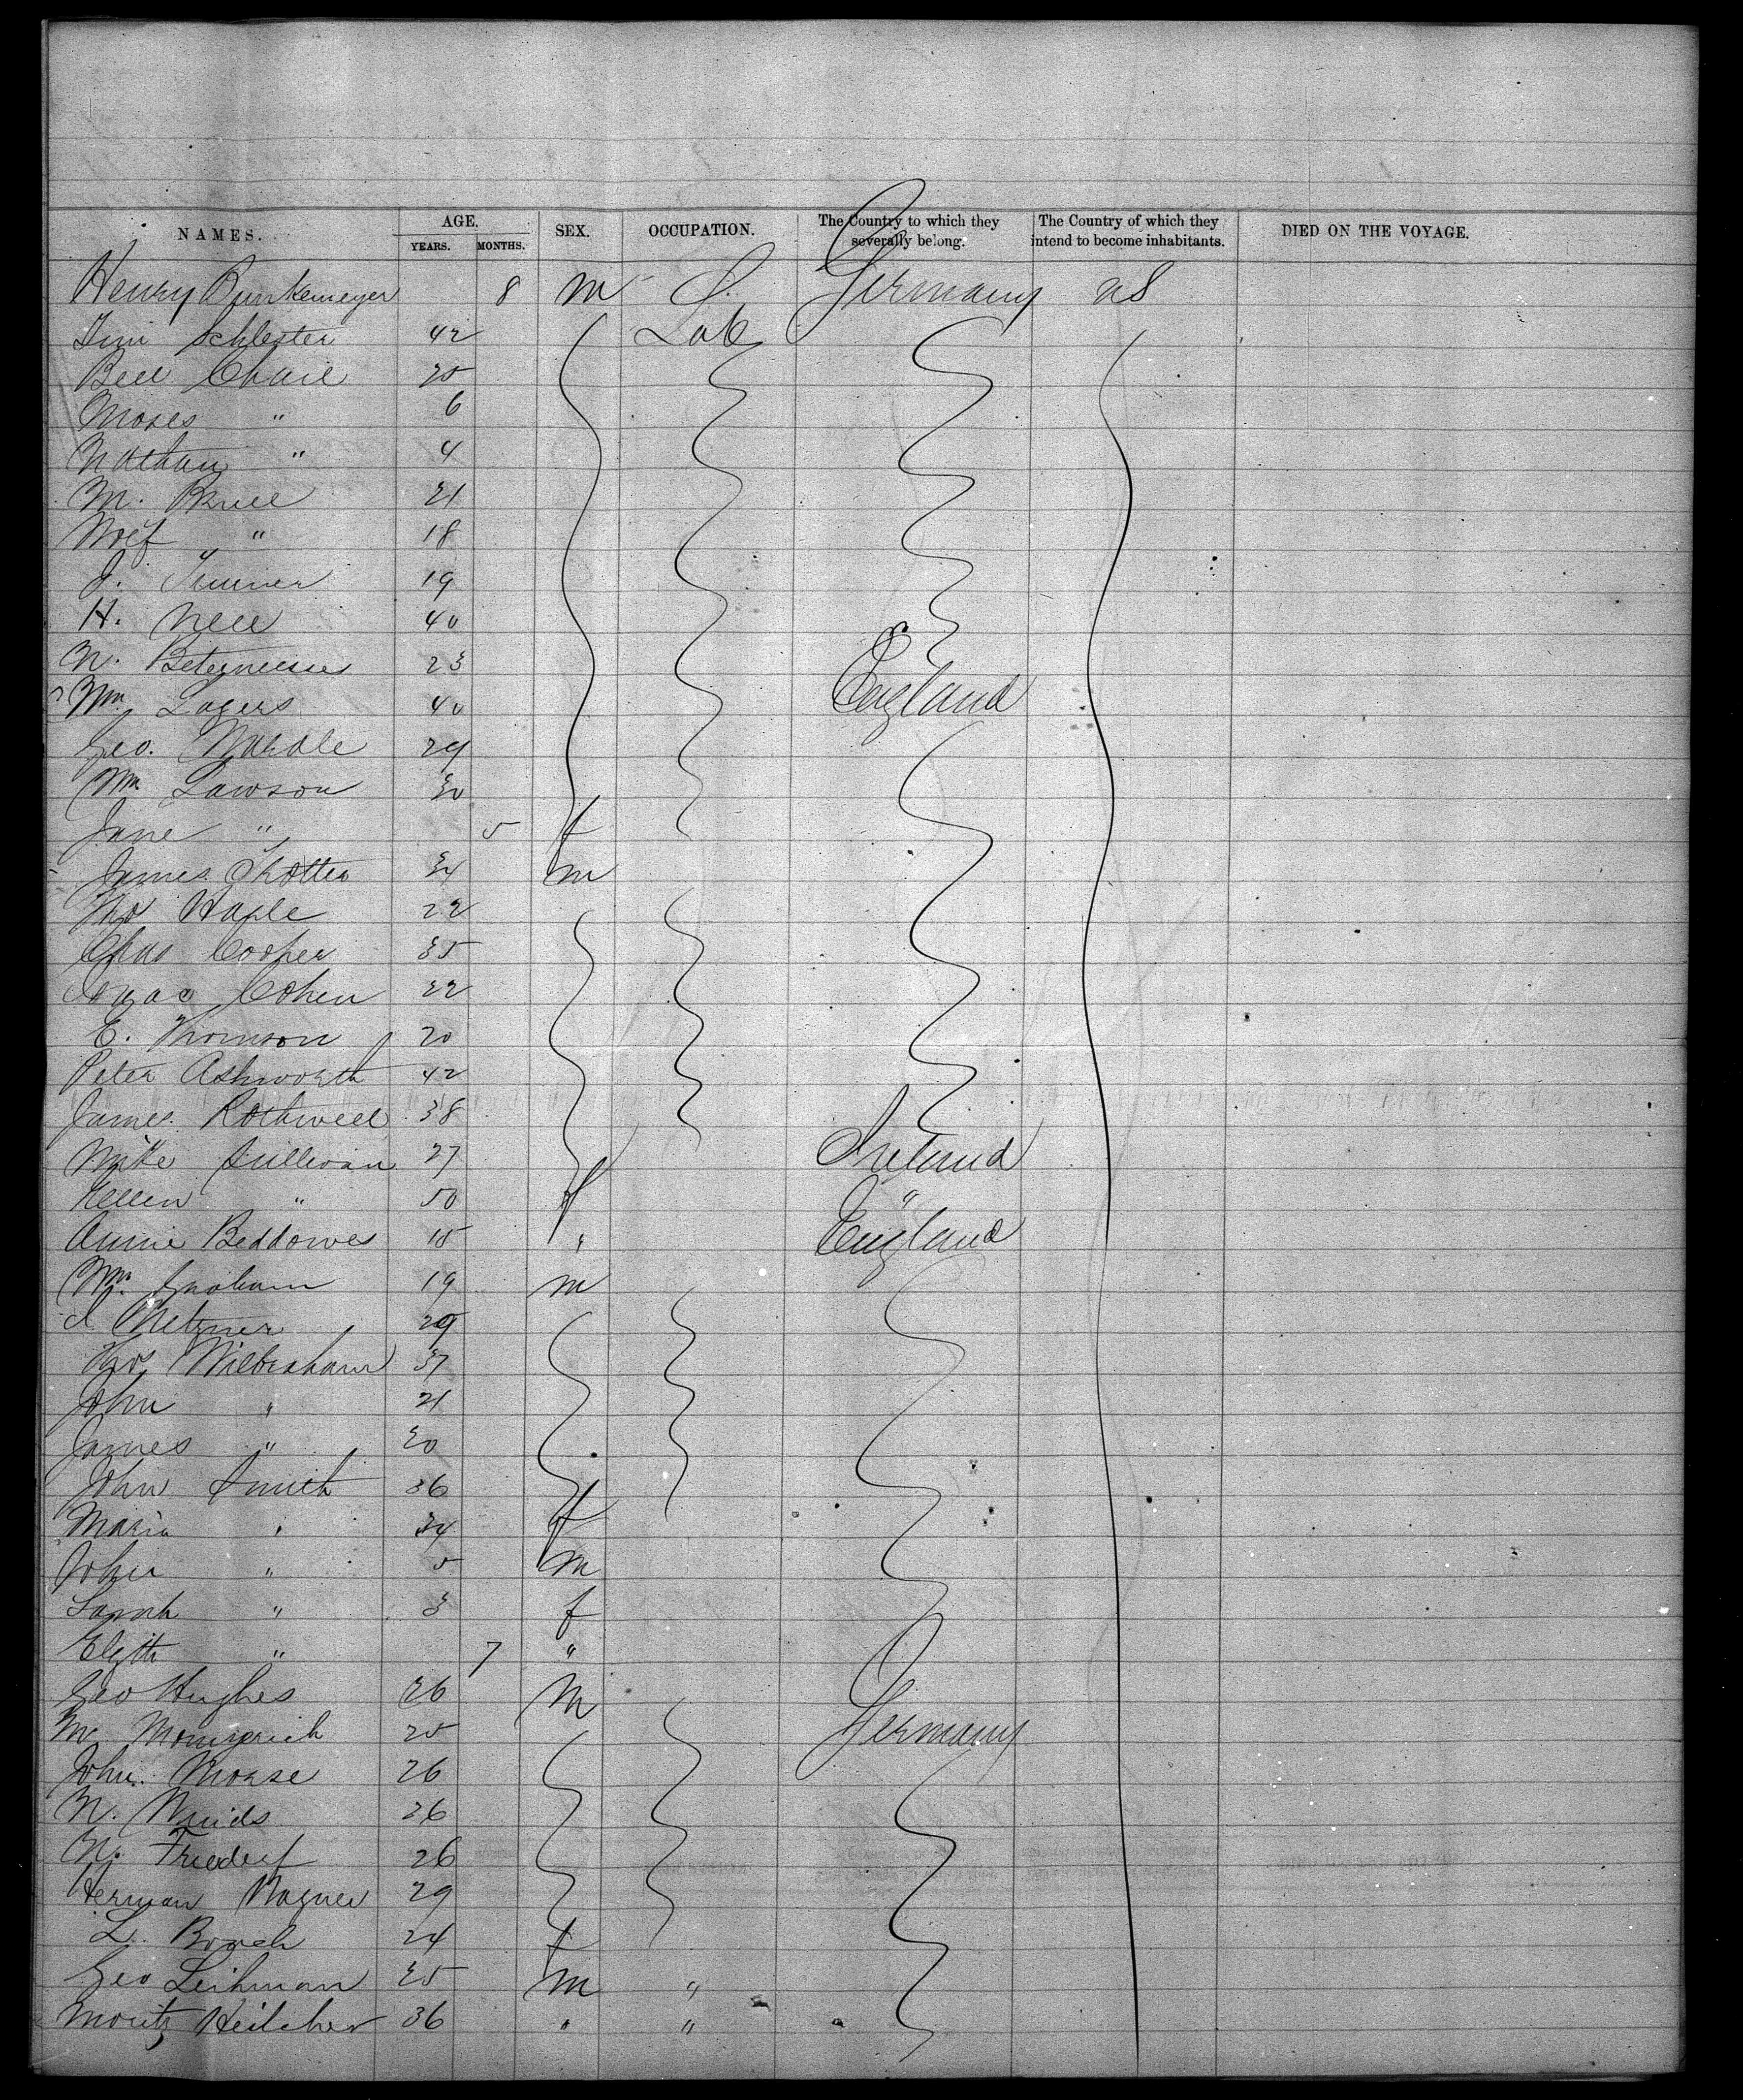 NAMES. AGE. YEARS. MONTHS. SEX. OCCUPATION. The Country to which they severally belong. The Country of which they intend to become inhabitants. DIED ON THE VOYAGE.
Henry Bunkemeyer 8 m Germany US
Schlester 42 Lab
Chail 25
Moses " 6
Nathan " 4
M. 21
" 18
J. 19
H. Nell 40
N. 23
Wm Lagers 40 England
Geo. Wardle 29
Wm Lawson 30
Jane " 5 f
James Trotter 34 m
Thos Hable 22
Chas Cooper 35
Isaac Cohen 22
E. Thomson 20
Peter Ashworth 42
James Rothwell 38
Mike Sullivan 27 Ireland
Hellen " 50 f "
Annie Beddowes 18 " England
Wm. Graham 19 m
Metzner 29
Thos Wilbraham 37
John " 21
James " 20
John Smith 36
Maria " 34 f
John " 5 m
Sarah " 3 f
" 7 "
Geo Hughes 26 m
M. 25 Germany
John Morse 26
N. 26
N. 26
Herman Wagner 29
L. 24 f
Geo Leihman 25 m "
Moritz Heilcher 36 " "